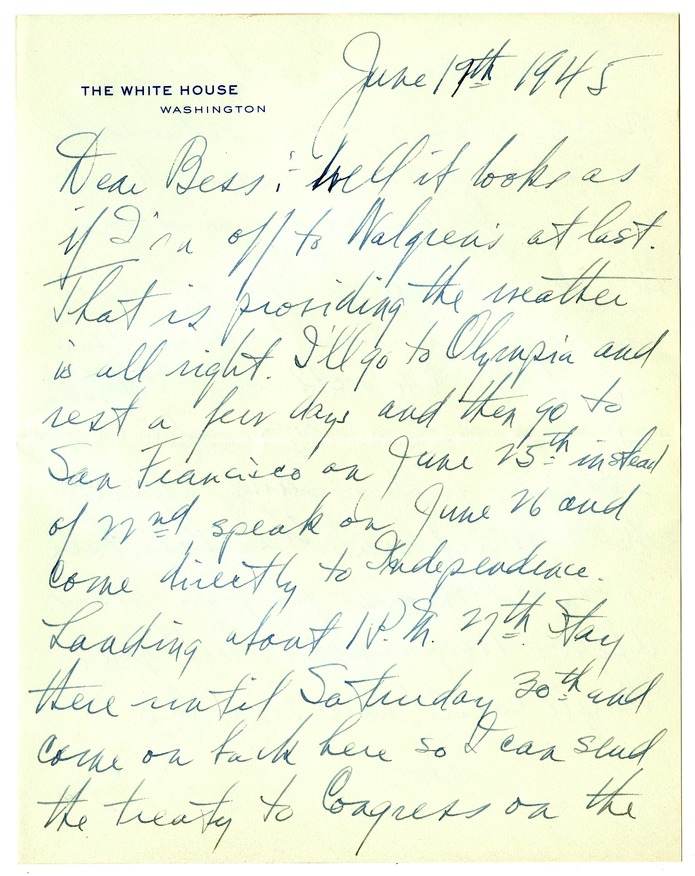 THE WHITE HOUSE
WASHINGTON
June 19th 1945
Dear Bess:- Well it looks as
if I'm off to Walgren's at last.
That is providing the weather
is all right. I'll go to Olympia and
rest a few days and then go to
San Francisco on June 25th instead
of 22nd speak on June 26 and
come directly to Independence.
Landing about 1 P.M. 27th Stay
there until Saturday 30th and
come on back here so I can send
the treaty to Congress on the